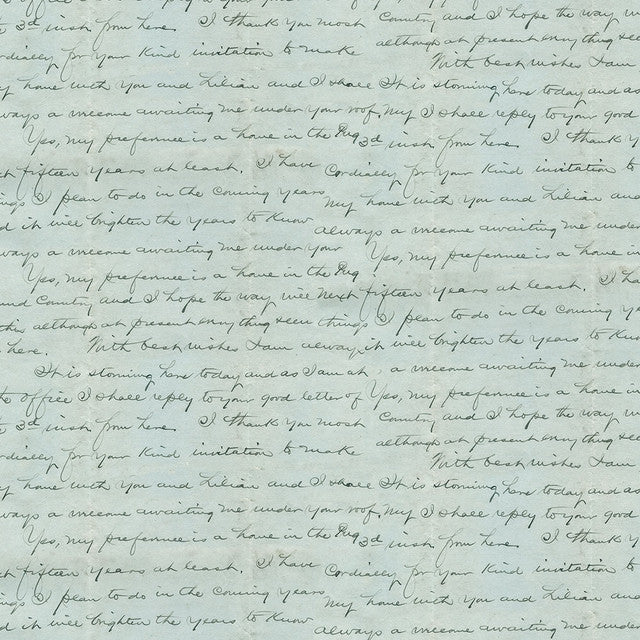 3d inst. from here. I thank you most
Cordially for your kind invitation to make
Country and I hope the way w
although at present everything see
With best wishes I am
my home with you and Lilian and I shall
It is storming here today and as
always a welcome awaiting me under your roof.
I shall reply to your good
Yes, my preference is a home in the
3d inst. from here. I thank y
fifteen years at least. I have
Cordially for your kind invitation to
things I plan to do in the coming years
my home with you and Lilian and
d it will brighten the years to know
always a welcome awaiting me under
always a welcome awaiting me under your
Yes, my preference is a home in
Yes, my preference is a home in the
and Country and I hope the way will
next fifteen years at least. I ha
this although at present everything seem
things I plan to do in the coming ye
here. With best wishes I am always,
it will brighten the years to know
It is storming here today and as I am at
a welcome awaiting me under
the office I shall reply to your good letter of
Yes, my preference is a home in
3d inst. from here. I thank you most
Country and I hope the way w
Cordially for your kind invitation to make
although at present everything see
With best wishes I am
my home with you and Lilian and I shall
It is storming here today and as
always a welcome awaiting me under your roof.
I shall reply to your good
Yes, my preference is a home in the
3d inst. from here. I thank y
fifteen years at least. I have
Cordially for your kind invitation to
things I plan to do in the coming years
my home with you and Lilian and
d it will brighten the years to know
always a welcome awaiting me under